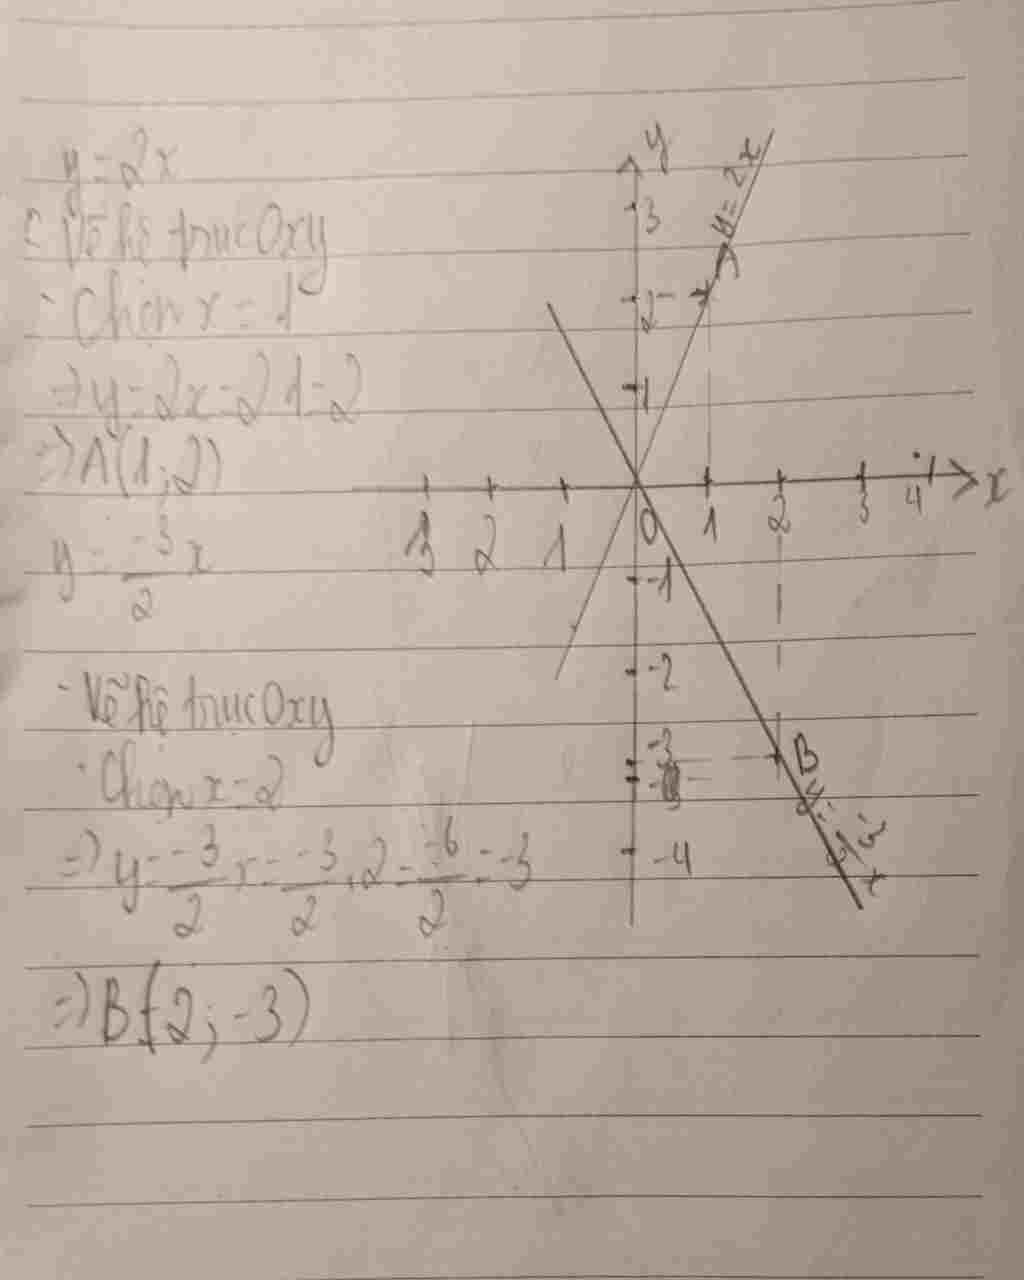 y = 2x
- Vẽ hệ trục Oxy
- Chọn x = 1
=> y = 2x = 2.1 = 2
=> A(1; 2)
y = -3/2 x
- Vẽ hệ trục Oxy
- Chọn x = 2
=> y = -3/2 x = -3/2 . 2 = -6/2 = -3
=> B(2; -3)
y
y = 2x
3
2
1
3 2 1 0 1 2 3 4 x
-1
-2
-3
B
-4